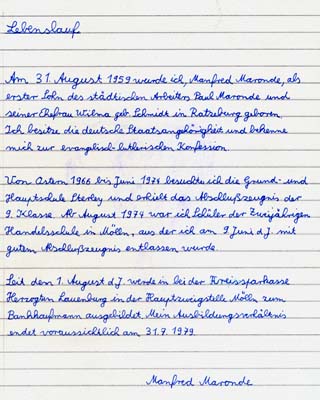 Lebenslauf
Am 31. August 1959 wurde ich, Manfred Maronde, als
erster Sohn des städtischen Arbeiters Paul Maronde und
seiner Ehefrau Wilma geb. Schmidt in Ratzeburg geboren.
Ich besitze die deutsche Staatsangehörigkeit und bekenne
mich zur evanglisch-lutherischen Konfession.
Von Ostern 1966 bis Juni 1974 besuchte ich die Grund- und
Hauptschule Sterley und erhielt das Abschlußzeugnis der
9. Klasse. Ab August 1974 war ich Schüler der Zweijährigen
Handelsschule in Mölln, aus der ich am 9. Juni d.J. mit
gutem Abschlußzeugnis entlassen wurde.
Seit dem 1. August d.J. werde in bei der Kreissparkasse
Herzogtum Lauenburg in der Hauptzweigstelle Mölln zum
Bankkaufmann ausgebildet. Mein Ausbildungsverhältnis
endet voraussichtlich am 31.7.1979.
Manfred Maronde